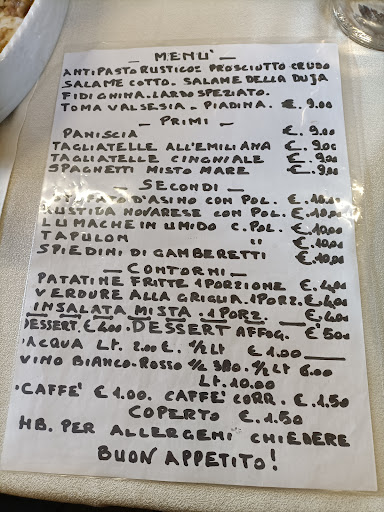 — MENU' —
ANTIPASTO RUSTICO= PROSCIUTTO CRUDO
SALAME COTTO. SALAME DELLA DUJA
FIDIGHINA. LARDO SPEZIATO.
TOMA VALSESIA - PIADINA. €. 9.00
— PRIMI —
PANISCIA €. 9.00
TAGLIATELLE ALL'EMILIANA €. 9.00
TAGLIATELLE CINGHIALE €. 9.00
SPAGHETTI MISTO MARE €. 9.00
— SECONDI —
STUFATO D'ASINO CON POL. €. 10.00
RUSTIDA NOVARESE CON POL. €. 10.00
LUMACHE IN UMIDO C. POL. €. 10.00
TAPULON " €. 10.00
SPIEDINI DI GAMBERETTI €. 10.00
— CONTORNI —
PATATINE FRITTE 1 PORZIONE €. 4.00
VERDURE ALLA GRIGLIA. 1 PORZ. €. 4.00
INSALATA MISTA. 1 PORZ. €. 4.00
DESSERT. € 4.00. DESSERT AFFOG. € 5.00
ACQUA Lt. 2.00 €. ½ Lt € 1.00
VINO BIANCO-ROSSO ¼ 3.00. ½ Lt 6.00
Lt. 10.00
.CAFFE' € 1.00. CAFFE' CORR. €. 1.50
COPERTO €. 1.50
NB. PER ALLERGENI CHIEDERE
BUON APPETITO!